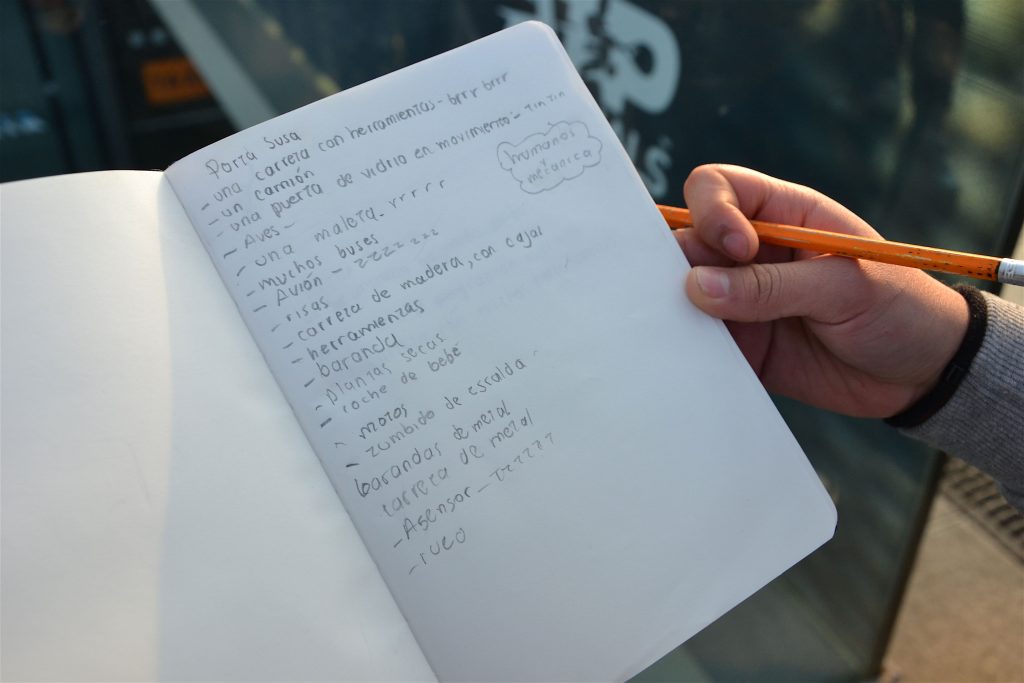 Porta Susa
- una carreta con herramientas - brrr brrr
- un camión
- una puerta de vidrio en movimiento - Tin Tin
- Aves -
- una maleta - rrrrr
- muchos buses
- Avión - zzzz zzz
- risas
- carreta de madera, con cajas
- herramientas
- baranda
- plantas secas
- coche de bebé
- motos
- zumbido de
barandas de metal
carreta de metal
- Asensor -
humanos
mecánico